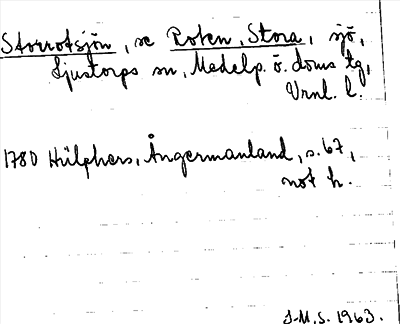 Storrotsjön, se Roten, Stora, sjö,
Ljustorps sn, Medelp. ö. doms tg,
Vrnl. l.
1780 Hülphers, Ångermanland, s. 67,
not h.
J.M.S. 1963.